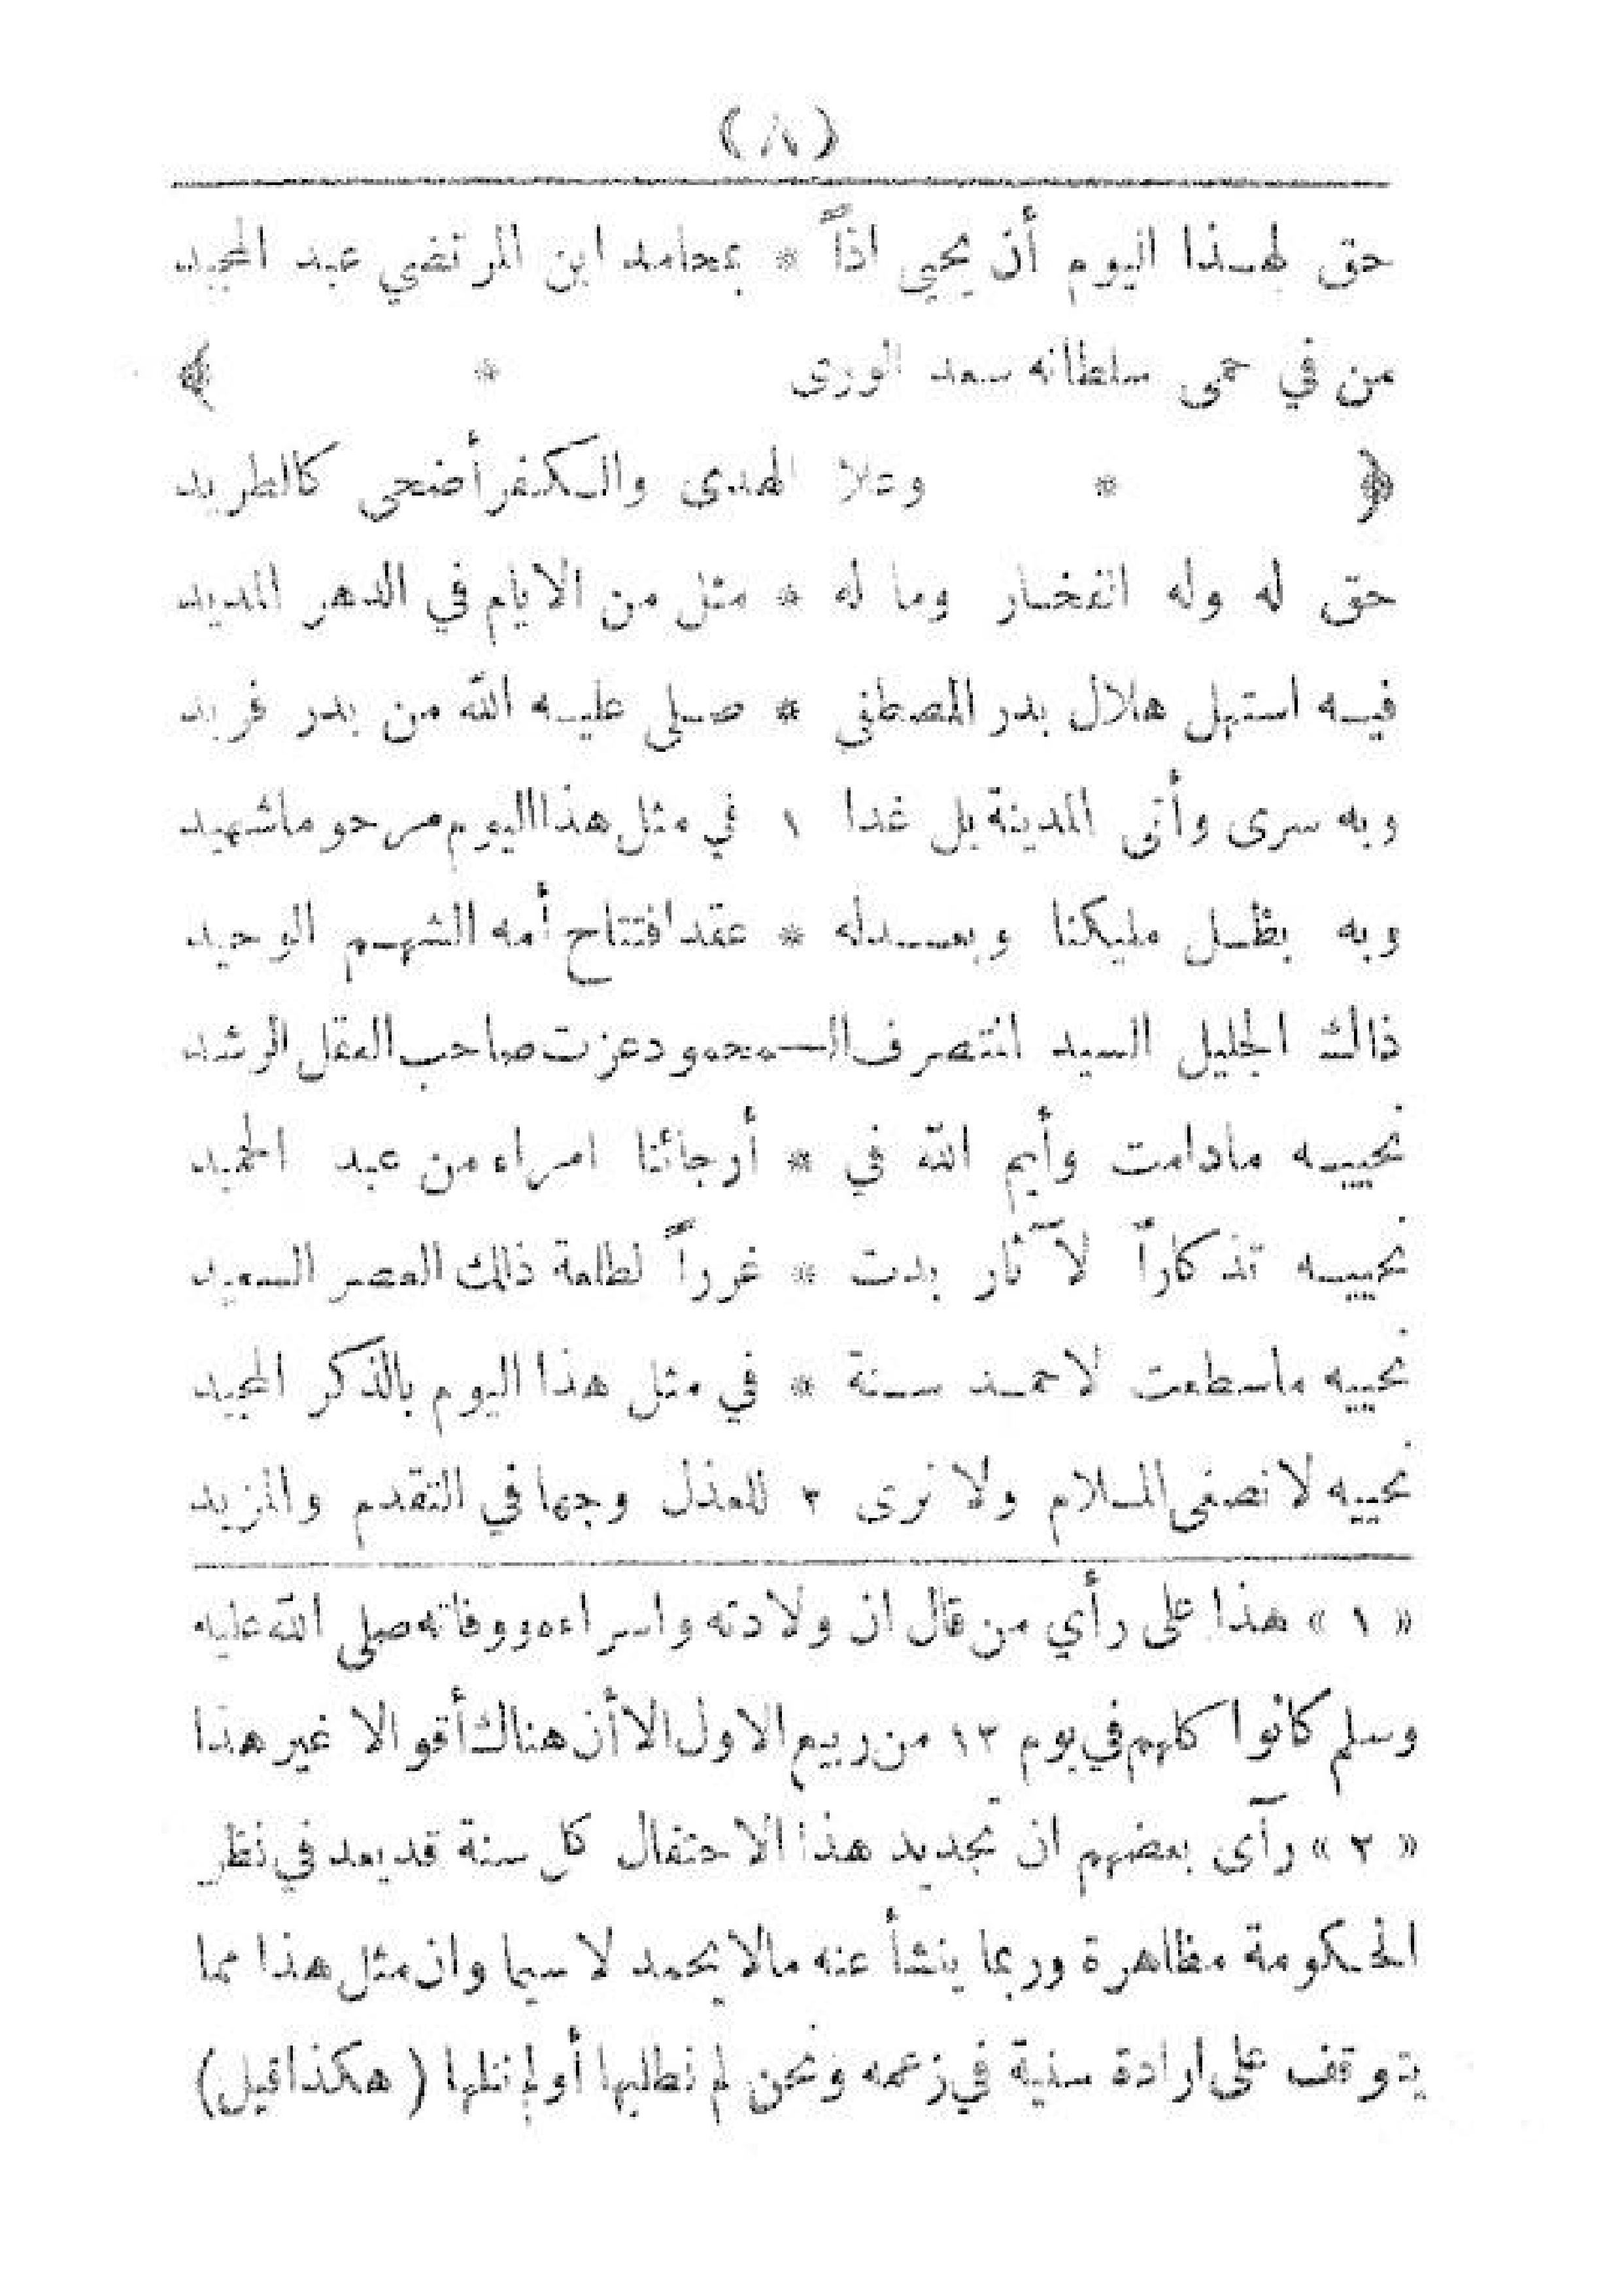 (٨)
حق لهذا اليوم أن يحيى اذاً * بمحامد ابن المرتضي عبد المجيد
من في حمى سلطانه سعد الورى * ﴾
﴿ * وعلا الهدى والكفر أضحى كالطريد
حق له وله الفخار وما له * مثل من الايام في الدهر المديد
فيه استهل هلال بدر المصطفى * صلى عليه الله من بدر فريد
وبه سرى وأتى المدينة بل غدا ١ في مثل هذا اليوم مرحوما شهيد
وبه بظل مليكنا وبعدله * عقد افتتاح أمه الشهم الوحيد
ذاك الجليل السيد المتصرف الـمحمود عزت صاحب العقل الرشد
نحييه مادامت وأيم الله في * أرجائنا امراء من عبد الحميد
نحييه تذكاراً لآثار بدت * غرراً لطلعة ذلك العصر السعيد
نحييه ماسطعت لاحمد سنة * في مثل هذا اليوم بالذكر المجيد
نحييه لا نصغى الملام ولا نرى ٢ للعذل وجها في التقدم والمزيد
« ١ » هذا على رأي من قال ان ولادته واسراءه ووفاته صلى الله عليه
وسلم كانوا كلهم في يوم ١٢ من ربيع الاول الا أن هناك أقوالا غير هذا
« ٢ » رآى بعضهم ان تجديد هذا الاحتفال كل سنة قد يعد في نظر
الحكومة مظاهرة وربما ينشأ عنه مالا يحمد لا سيما وان مثل هذا مما
يتوقف على ارادة سنية في زعمه ونحن لم نطلبها أو لم ننلها ( هكذا قيل )